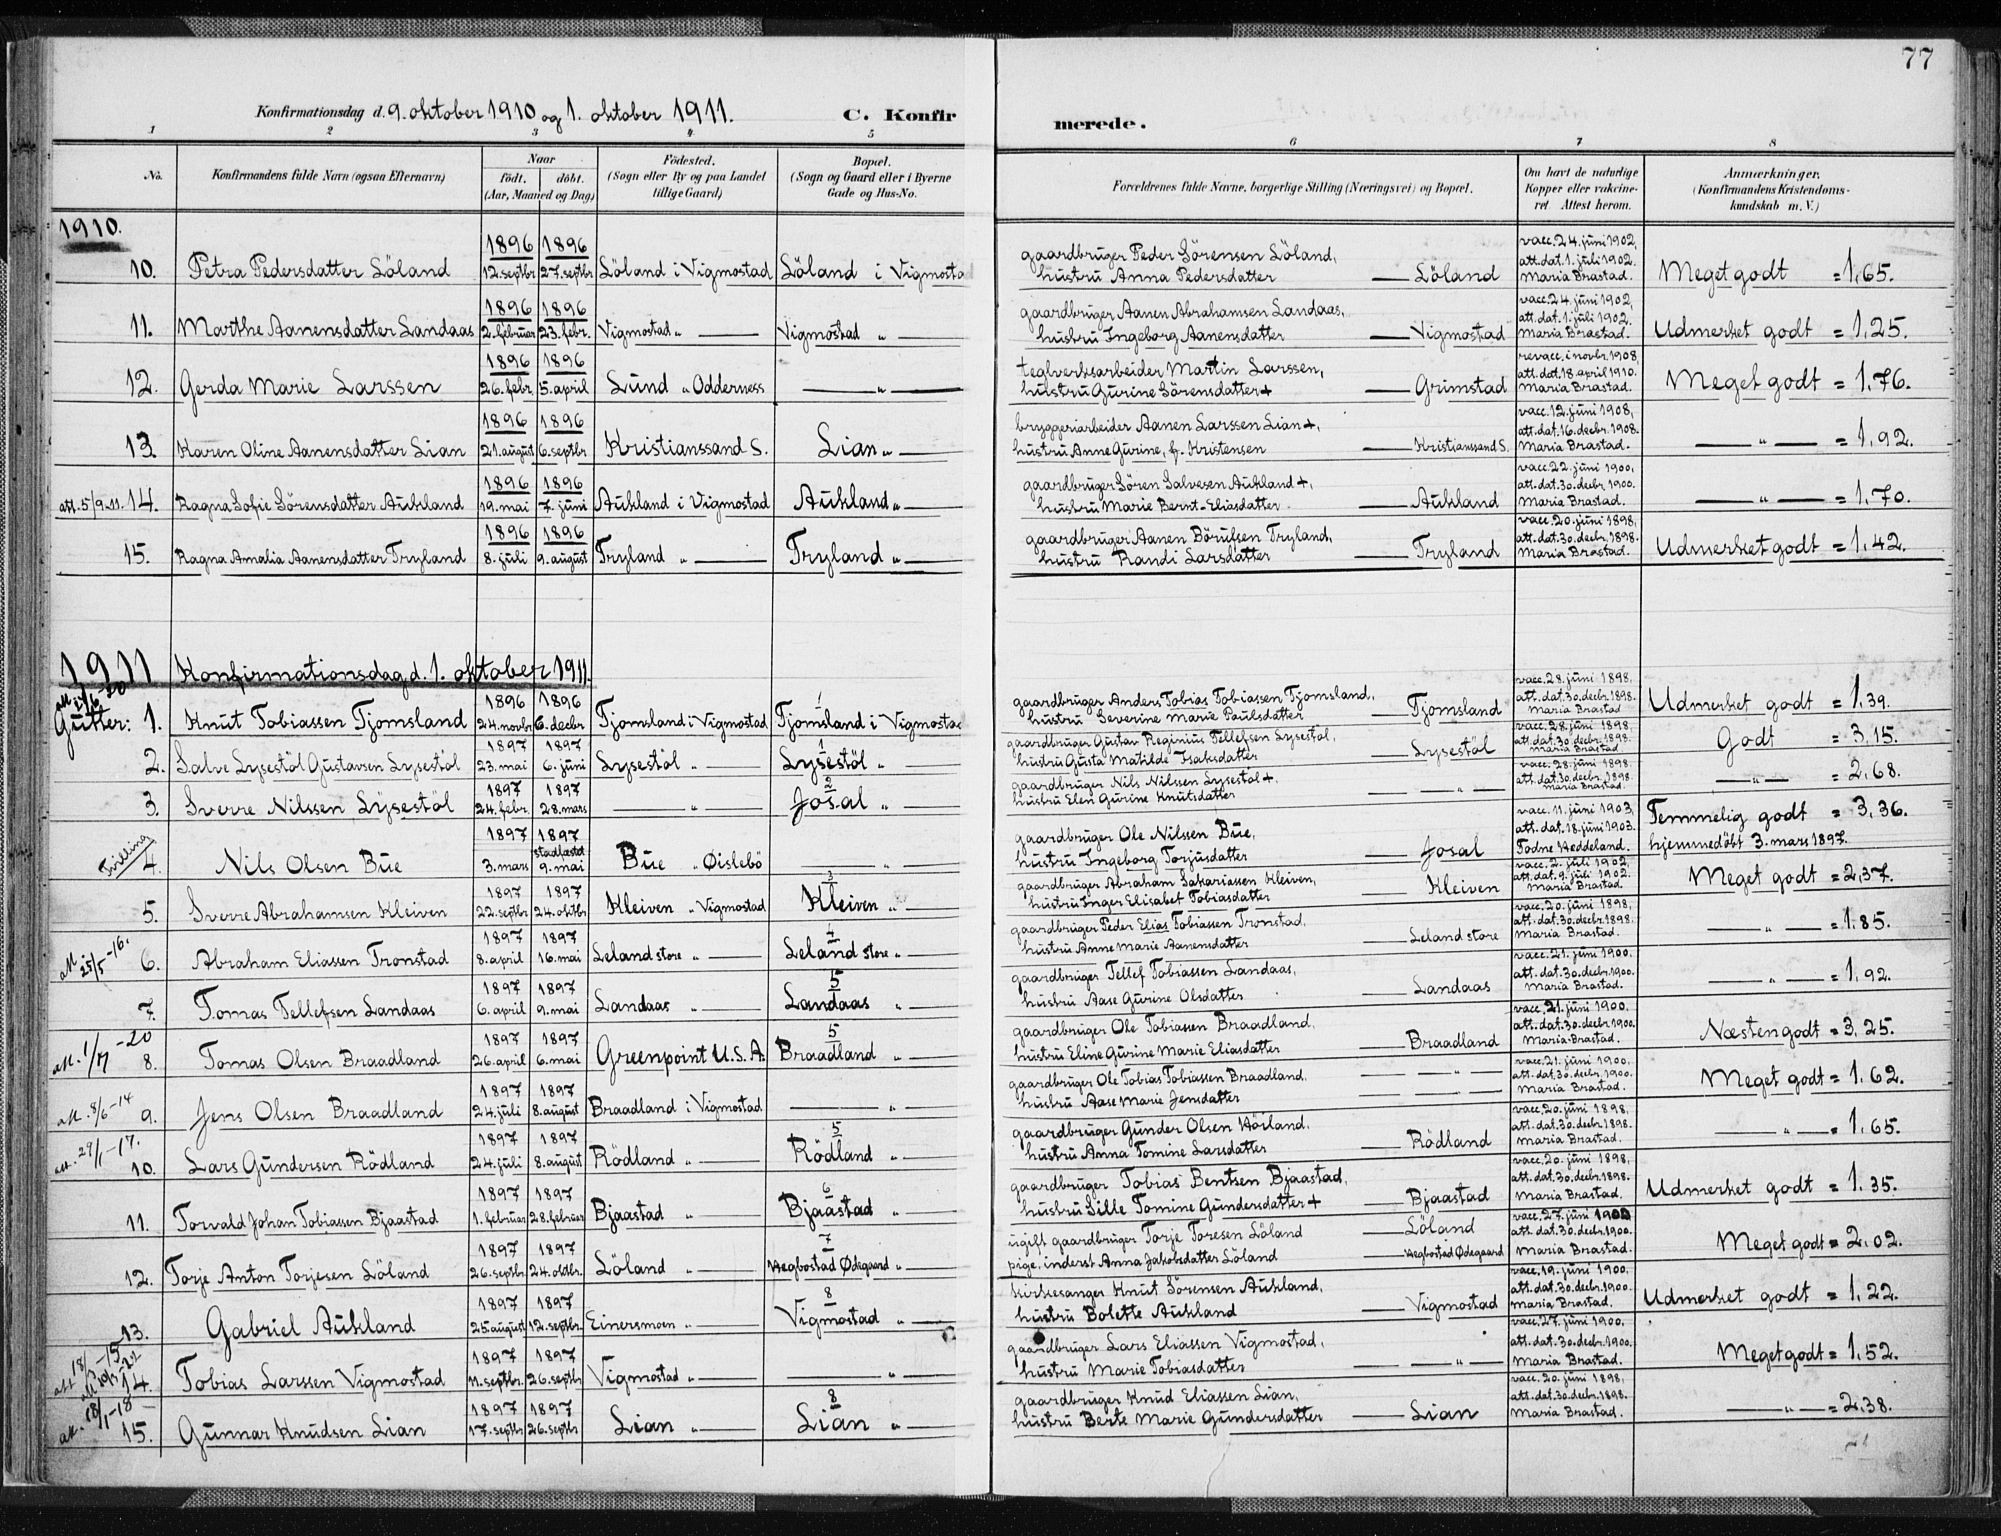 77
Konfirmationsdag d. 9. oktober 1910 og 1. oktober 1911. C. Konfirmerede.
1 2 3 4 5 6 7 8
No. Konfirmandens fulde Navn (ogsaa Efternavn) Naar født. døbt. (Aar, Maaned og Dag) Fødested. (Sogn eller By og paa Landet tillige Gaard) Bopæl. (Sogn og Gaard eller i Byerne Gade og Hus-No. Forældrenes fulde Navne, borgerlige Stilling (Næringsvei) og Bopæl. Om havt de naturlige Kopper eller vakcineret. Attest herom. Anmærkninger. (Konfirmandens Kristendomskundskab m. V.)
1910.
10. Petra Pedersdatter Löland 1896 12. septbr 1896 27. septbr Löland i Vigmostad Löland i Vigmosta gaardbruger Peder Sörensen Löland, hustru Anna Pedersdatter — Löland vacc. 24. juni 1902, att. dat. 1. juli 1902. Maria Brastad. Meget godt = 1,65.
11. Marthe Aanensdatter Landaas 1896 2. februar 1896 23. febr. Vigmostad „ — Vigmostad „ — gaardbruger Aanen Abrahamsen Landaas, hustru Ingeborg Aanensdatter — Vigmostad vacc. 24. juni 1902, att. dat. 1. juli 1902. Maria Brastad. Udmerket godt = 1,25.
12. Gerda Marie Larssen 1896 26. febr. 1896 5. april Lund „ Odderness — „ — teglverksarbeider Martin Larssen, hustru Gurine Sörensdatter + — Grimstad revacc. i novbr. 1908, att. dat. 18. april 1910. Maria Brastad. Meget godt = 1,76.
13. Karen Oline Aanensdatter Lian 1896 21. august 1896 6. septbr Kristianssand S. Lian „ — bryggeriarbeider Aanen Larssen Lian +, hustru Anne Gurine, f. Kristensen — Kristianssand S. vacc. 12. juni 1908, att. dat. 16. decbr. 1908. Maria Brastad. — „ — = 1,92.
att. 5/9 11. 14. Ragna Sofie Sörensdatter Aukland 1896 19. mai 1896 7. juni Aukland i Vigmostad Aukland „ — gaardbruger Sören Salvesen Aukland +, hustru Marie Bernt-Eliasdatter — Aukland vacc. 22. juni 1900, att. dat. 30. decbr. 1900. Maria Brastad. — „ — = 1,70.
15. Ragna Amalia Aanensdatter Tryland 1896 8. juli 1896 9. august Tryland „ — Tryland „ — gaardbruger Aanen Börufsen Tryland, hustru Randi Larsdatter — Tryland vacc. 20. juni 1898, att. dat. 30. decbr. 1898. Maria Brastad. Udmerket godt = 1,42.
1911 Konfirmationsdag d. 1. oktober 1911.
Gutter: 1. Knut Tobiassen Tjomsland 1896 24. novbr 1896 6. decbr Tjomsland i Vigmostad 1 Tjomsland i Vigmostad gaardbruger Anders Tobias Tobiassen Tjomsland, hustru Severine Marie Paulsdatter — Tjomsland vacc. 28. juni 1898. att. dat. 30. decbr. 1898. Maria Brastad Udmerket godt = 1,39.
2. Salve Lysestöl Gustavsen Lysestöl 1897 23. mai 1897 6. juni Lysestöl „ — 1 Lysestöl „ — gaardbruger Gustav Reginius Tellefsen Lysestöl, hustru Gusta Matilde Isaksdatter — Lysestöl vacc. 28. juni 1898, att. dat. 30. decbr. 1898. Maria Brastad Godt = 3,15.
3. Sverre Nilssen Lysestöl 1897 24. febr. 1897 28. mars — „ 2 Josal „ — gaardbruger Nils Nilssen Lysestöl +, hustru Elen Gurine Knutsdatter — „ — vacc. 28. juni 1898. att. dat. 30. decbr. 1898. Maria Brastad. — „ — = 2,68.
Tvilling 4. Nils Olsen Bue 1897 3. mars 1897 stadfæstd 9. mai Bue „ Øislebö — „ gaardbruger Ole Nilssen Bue, hustru Ingeborg Torjusdatter — Josal vacc. 11. juni 1903, att. dat. 18. juni 1903. Todne Heddeland. Temmelig godt = 3,36. hjemmedöbt 3. mars 1897.
5. Sverre Abrahamsen Kleiven 1897 22. septbr 1897 24. oktbr Kleiven „ Vigmostad 3 Kleiven „ — gaardbruger Abraham Sakariassen Kleiven, hustru Inger Elisabet Tobiasdatter — Kleiven vacc. 2. juli 1902, att. dat. 9. juli 1902. Maria Brastad. Meget godt = 2,37.
att. 25/5-16. 6. Abraham Eliassen Tronstad 1897 8. april 1897 16. mai Leland store „ — 4 Leland store „ — gaardbruger Peder Elias Tobiassen Tronstad, hustru Anne Marie Aanensdatter — Leland store vacc. 20. juni 1898, att. dat. 30. decbr. 1898. Maria Brastad. — „ — = 1,85.
7. Tomas Tellefsen Landaas 1897 6. april 1897 9. mai Landaas „ — 5 Landaas „ — gaardbruger Tellef Tobiassen Landaas, hustru Aase Gurine Olsdatter — Landaas vacc. 21. juni 1900. att. dat. 30. decbr. 1900. Maria Brastad. — „ — = 1,92.
8. Tomas Olsen Braadland 1897 26. april 1897 6. mai Greenpoint U.S.A. 5 Braadland „ — gaardbruger Ole Tobiassen Braadland, hustru Eline Gurine Marie Eliasdatter — Braadland vacc. 21. juni 1900. att. dat. 30. decbr. 1900. Maria Brastad. Næsten godt = 3,25.
att. 8/6-14 9. Jens Olsen Braadland 1897 24. juli 1897 8. august Braadland i Vigmostad — „ — gaardbruger Ole Tobias Tobiassen Braadland, hustru Aase Marie Jensdatter — „ — vacc. 21. juni 1900. att. dat. 30. decbr. 1900. Maria Brastad. Meget godt = 1,62.
att. 29/1-17. 10. Lars Gundersen Rödland 1897 24. juli 1897 8. august Rödland „ — 5 Rödland „ — gaardbruger Gunder Olsen Hörland, hustru Anna Tomine Larsdatter — Rödland vacc. 20. juni 1898, att. dat. 30. decbr. 1898. Maria Brastad. — „ — = 1,65.
11. Torvald Johan Tobiassen Bjaastad 1897 1. februar 1897 28. februar Bjaastad „ — 6 Bjaastad „ — gaardbruger Tobias Bentsen Bjaastad, hustru Sille Tomine Gundersdatter + — Bjaastad vacc. 20. juni 1898, att. dat. 30. decbr. 1898. Maria Brastad. Udmerket godt = 1,35.
12. Torje Anton Torjesen Löland 1897 26. septbr. 1897 24. oktbr. Löland „ — 7 Hegbostad Ødegaard „ — ugift gaardbruger Torje Toresen Löland — Löland pige, inderst Anna Jakobsdatter Löland — Hegbostad Ødegaard vacc. 27. juni 1900 att. dat. 30. decbr. 1900. Maria Brastad. Meget godt = 2,02.
13. Gabriel Aukland 1897 25. august 1897 12. septbr. Einersmoen „ — 8 Vigmostad „ — kirkesanger Knut Sörensen Aukland, hustru Bolette Aukland — Vigmostad vacc. 19. juni 1900. att. dat. 30. decbr. 1900. Maria Brastad. Udmerket godt = 1,22.
14. Tobias Larssen Vigmostad 1897 11. septbr. 1897 26. septbr Vigmostad „ — — „ — gaardbruger Lars Eliassen Vigmostad, hustru Marie Tobiasdatter — „ — vacc. 27. juni 1900. att. dat. 30. decbr. 1900. Maria Brastad. Meget godt = 1,52.
att. 18/1-18 15. Gunnar Knudsen Lian 1897 17. septbr 1897 26. septbr Lian „ — 8 Lian „ — gaardbruger Knud Eliassen Lian, hustru Berte Marie Gundersdatter — Lian vacc. 20. juni 1898, att. dat. 30. decbr. 1898. Maria Brastad. — „ — = 2,38.